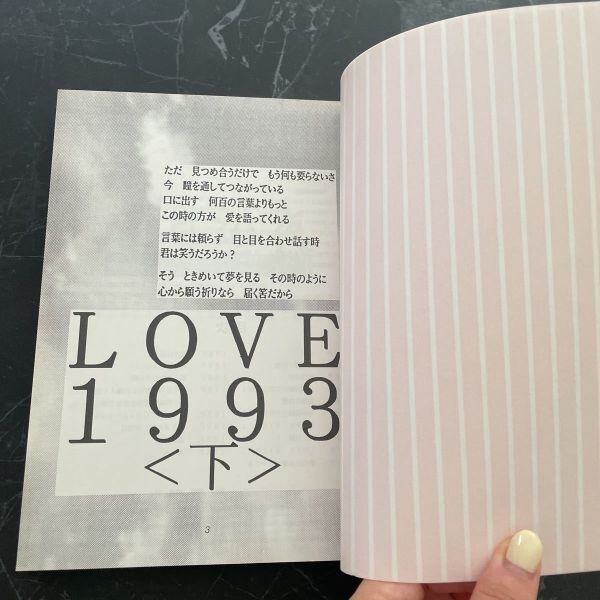 ただ　見つめ合うだけで　もう何も要らないさ
今　瞳を通してつながっている
口に出す　何百の言葉よりもっと
この時の方が　愛を語ってくれる
言葉には頼らず　目と目を合わせ話す時
君は笑うだろうか？
そう　ときめいて夢を見る　その時のように
心から願う祈りなら　届く筈だから
LOVE
1993
＜下＞
3